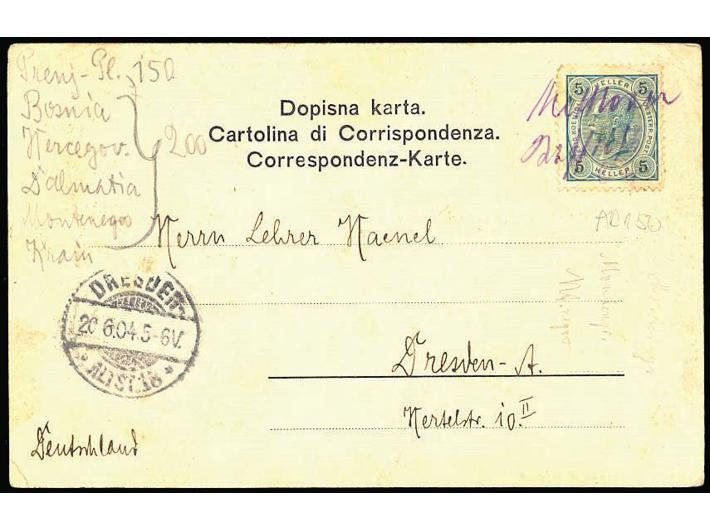 Prenj-Pl. 150
Bosnia
Hercegov.
Dalmatia
Montenegro
Krain
200
Dopisna karta.
Cartolina di Corrispondenza.
Correspondenz-Karte.
5 HELLER 5
5 HELLER 5
Herrn Lehrer Haenel
Dresden-A.
Hertelstr. 10.II
Deutschland
DRESDEN
20.6.04.5-6V.
* ALTST.16 *